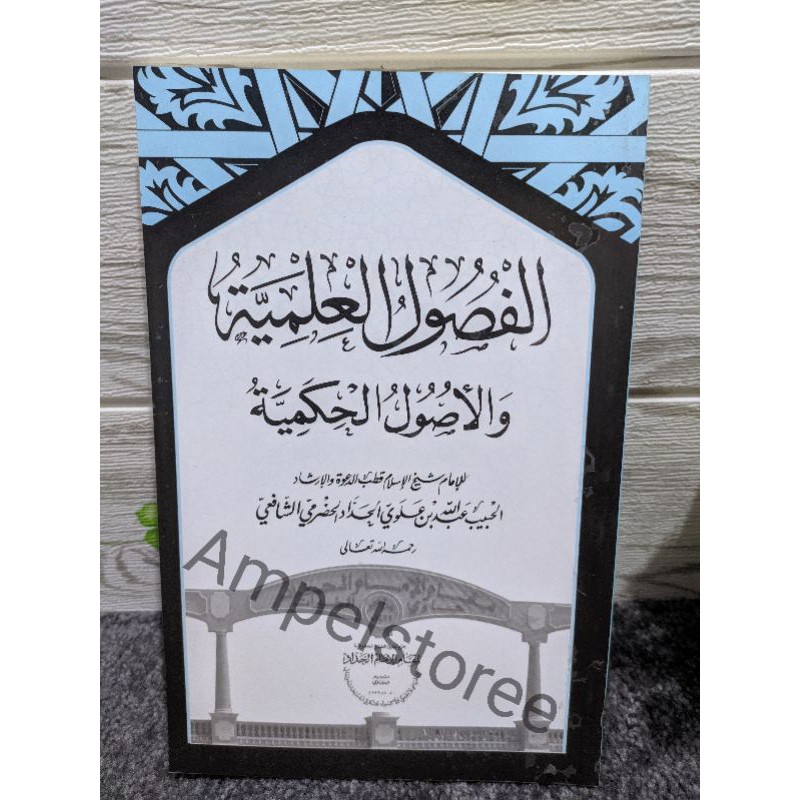 الفُصُولُ العِلْمِيَّةُ
وَالأُصُولُ الحِكَمِيَّةُ
للإمام شيخ الإسلام قطب الدعوة والإرشاد
الحبيب عبد الله بن علوي الحداد الحضرمي الشافعي
رحمه الله تعالى
Ampelstoree
مقام الإمام الحداد